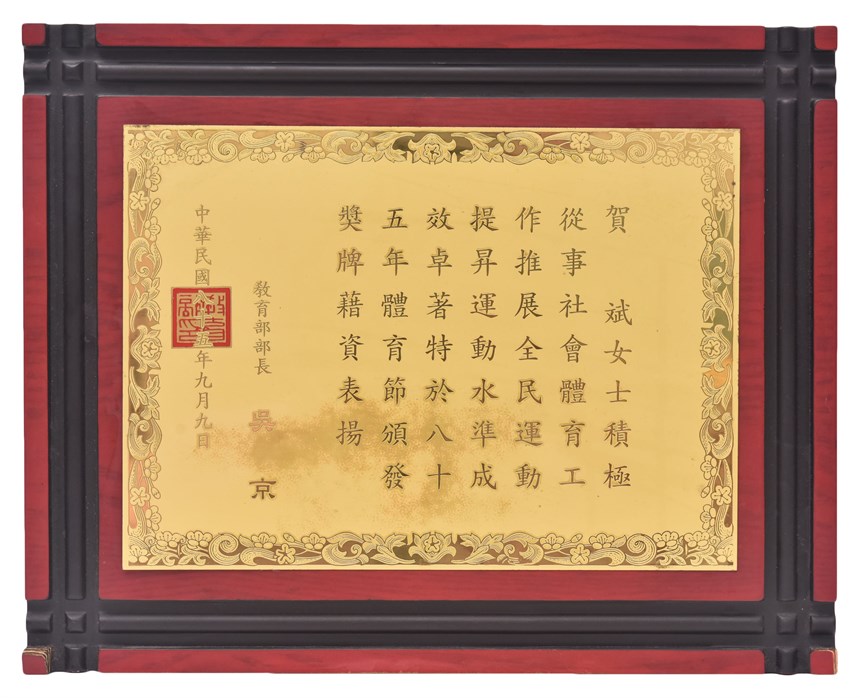 賀 斌女士積極
從事社會體育工
作推展全民運動
提昇運動水準成
效卓著特於八十
五年體育節頒發
獎牌藉資表揚
教育部部長 吳 京
中華民國八十五年九月九日